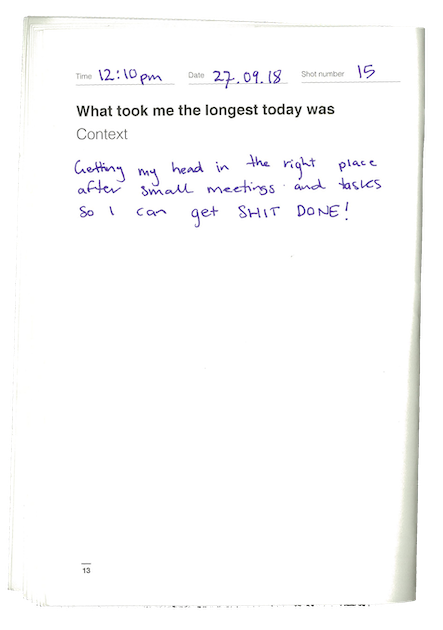 Time 12:10pm Date 27.09.18 Shot number 15
What took me the longest today was
Context
Getting my head in the right place
after small meetings and tasks
So I can get SHIT DONE!
13